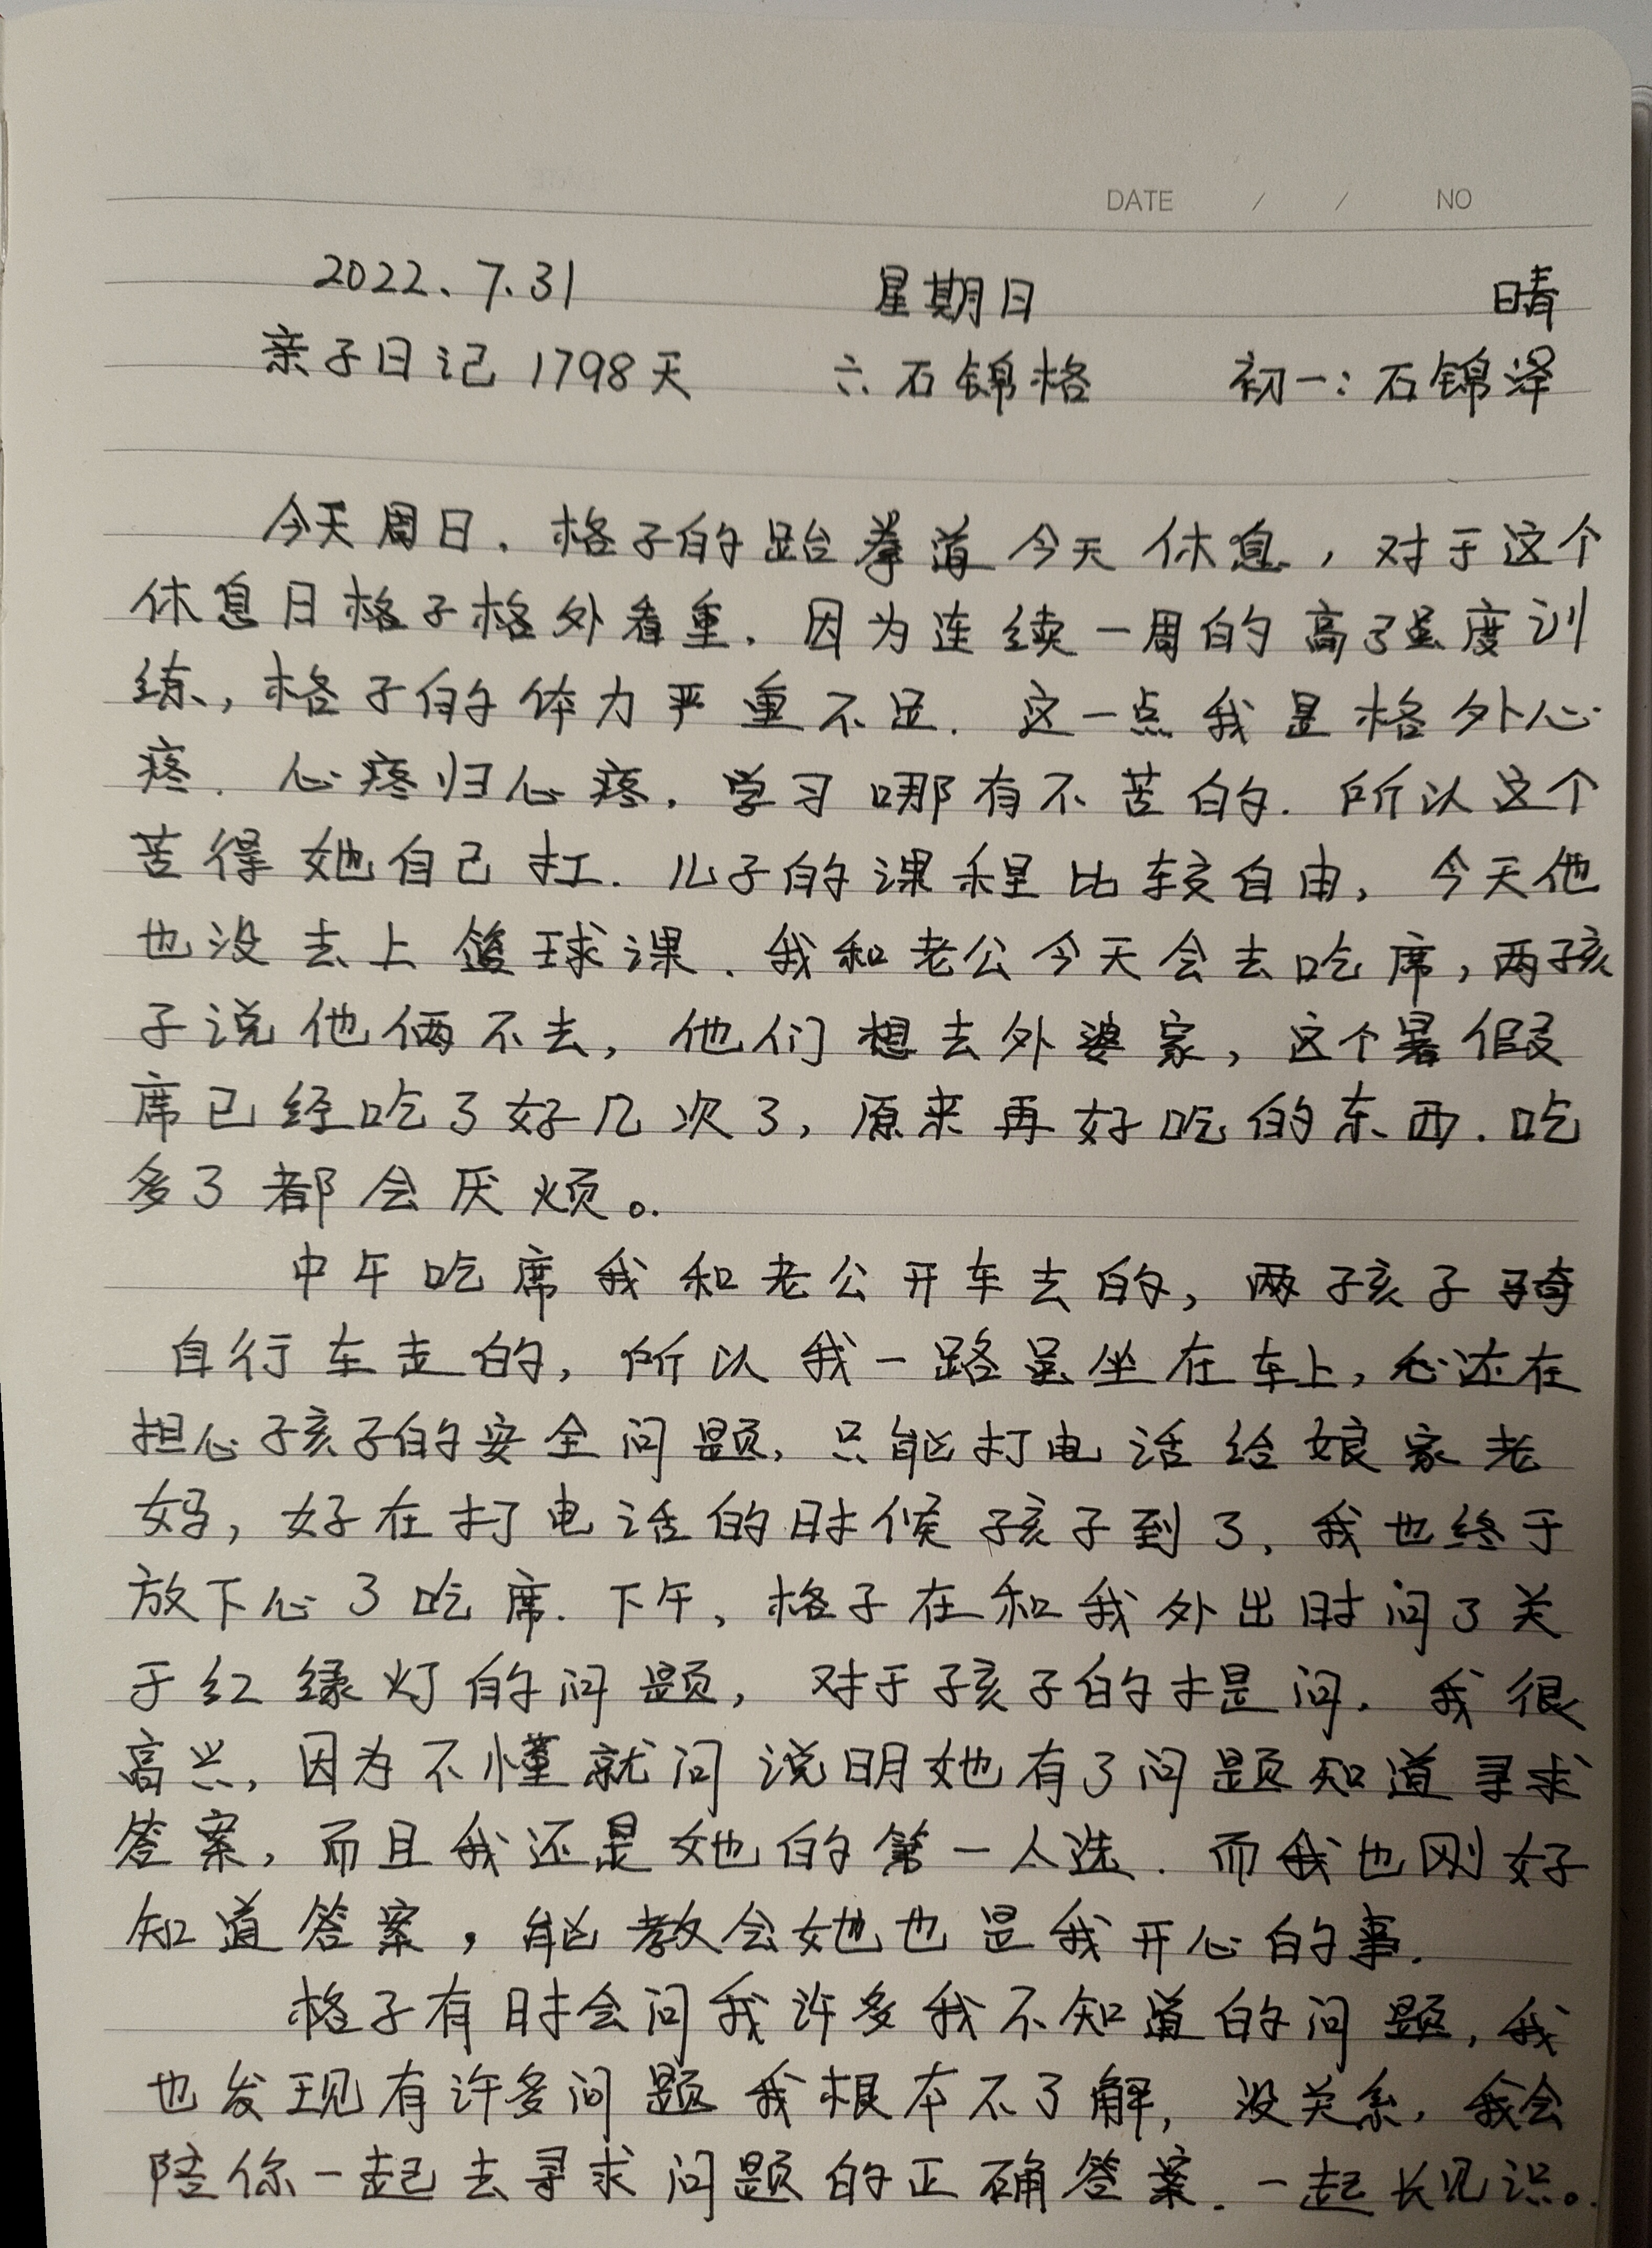 DATE / / NO
2022、7.31 星期日 晴
亲子日记 1798天 六:石锦格 初一:石锦泽
今天周日.格子的跆拳道今天休息,对于这个
休息日格子格外看重.因为连续一周的高强度训
练,格子的体力严重不足.这一点我是格外心
疼.心疼归心疼.学习哪有不苦的.所以这个
苦得她自己扛.儿子的课程比较自由,今天他
也没去上篮球课.我和老公今天会去吃席,两孩
子说他俩不去,他们想去外婆家,这个暑假
席已经吃了好几次了,原来再好吃的东西.吃
多了都会厌烦。
中午吃席我和老公开车去的,两孩子骑
自行车走的,所以我一路虽坐在车上,心还在
担心孩子的安全问题,只能打电话给娘家老
妈,好在打电话的时候孩子到了,我也终于
放下心了吃席.下午,格子在和我外出时问了关
于红绿灯的问题,对于孩子的提问,我很
高兴,因为不懂就问说明她有了问题知道寻求
答案,而且我还是她的第一人选.而我也刚好
知道答案,能教会她也是我开心的事.
格子有时会问我许多我不知道的问题,我
也发现有许多问题我根本不了解,没关系,我会
陪你一起去寻求问题的正确答案.一起长见识。